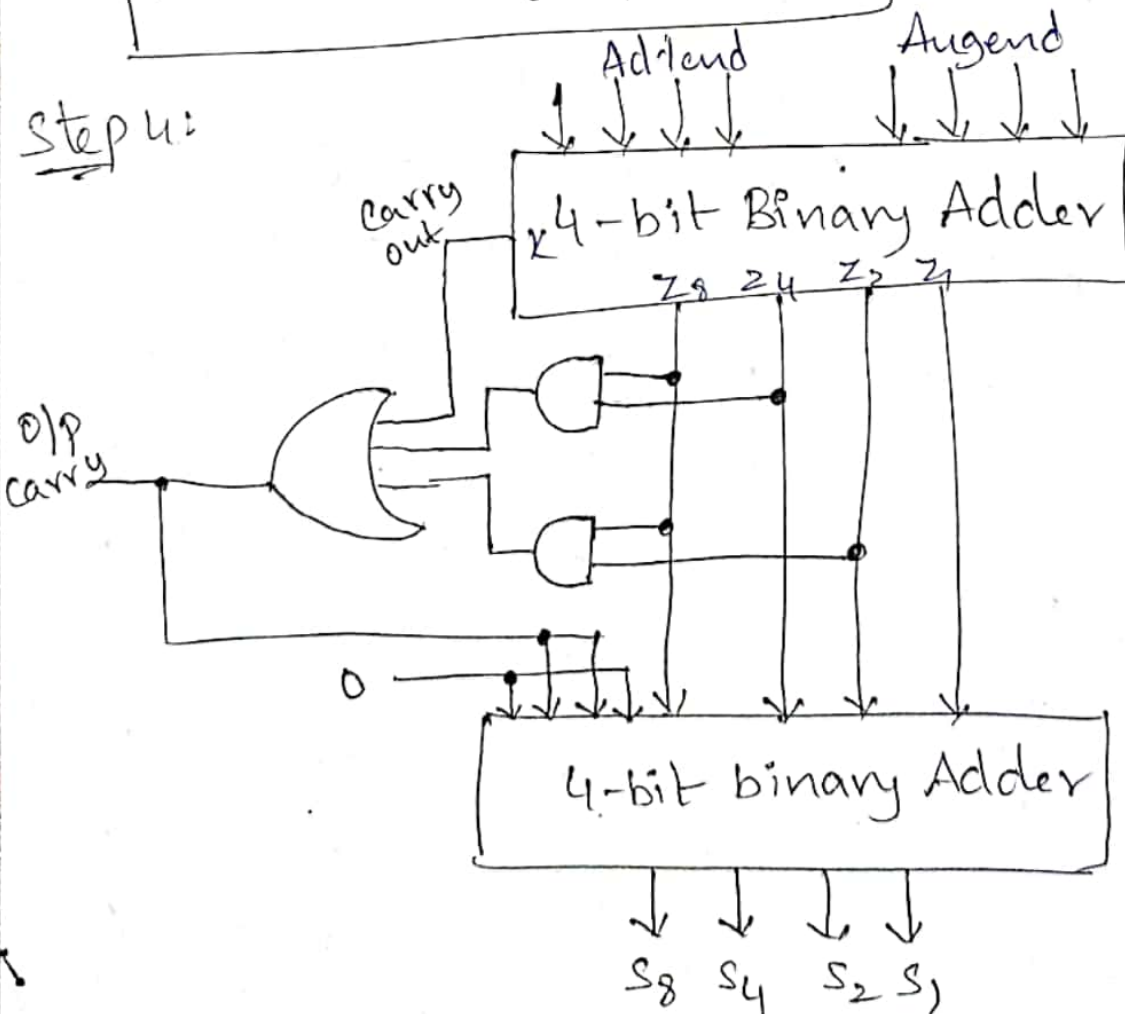 Addend Augend
Step 4:
Carry
out
K 4-bit Binary Adder
Z8 Z4 Z2 Z1
O/P
Carry
0
4-bit binary Adder
S8 S4 S2 S1